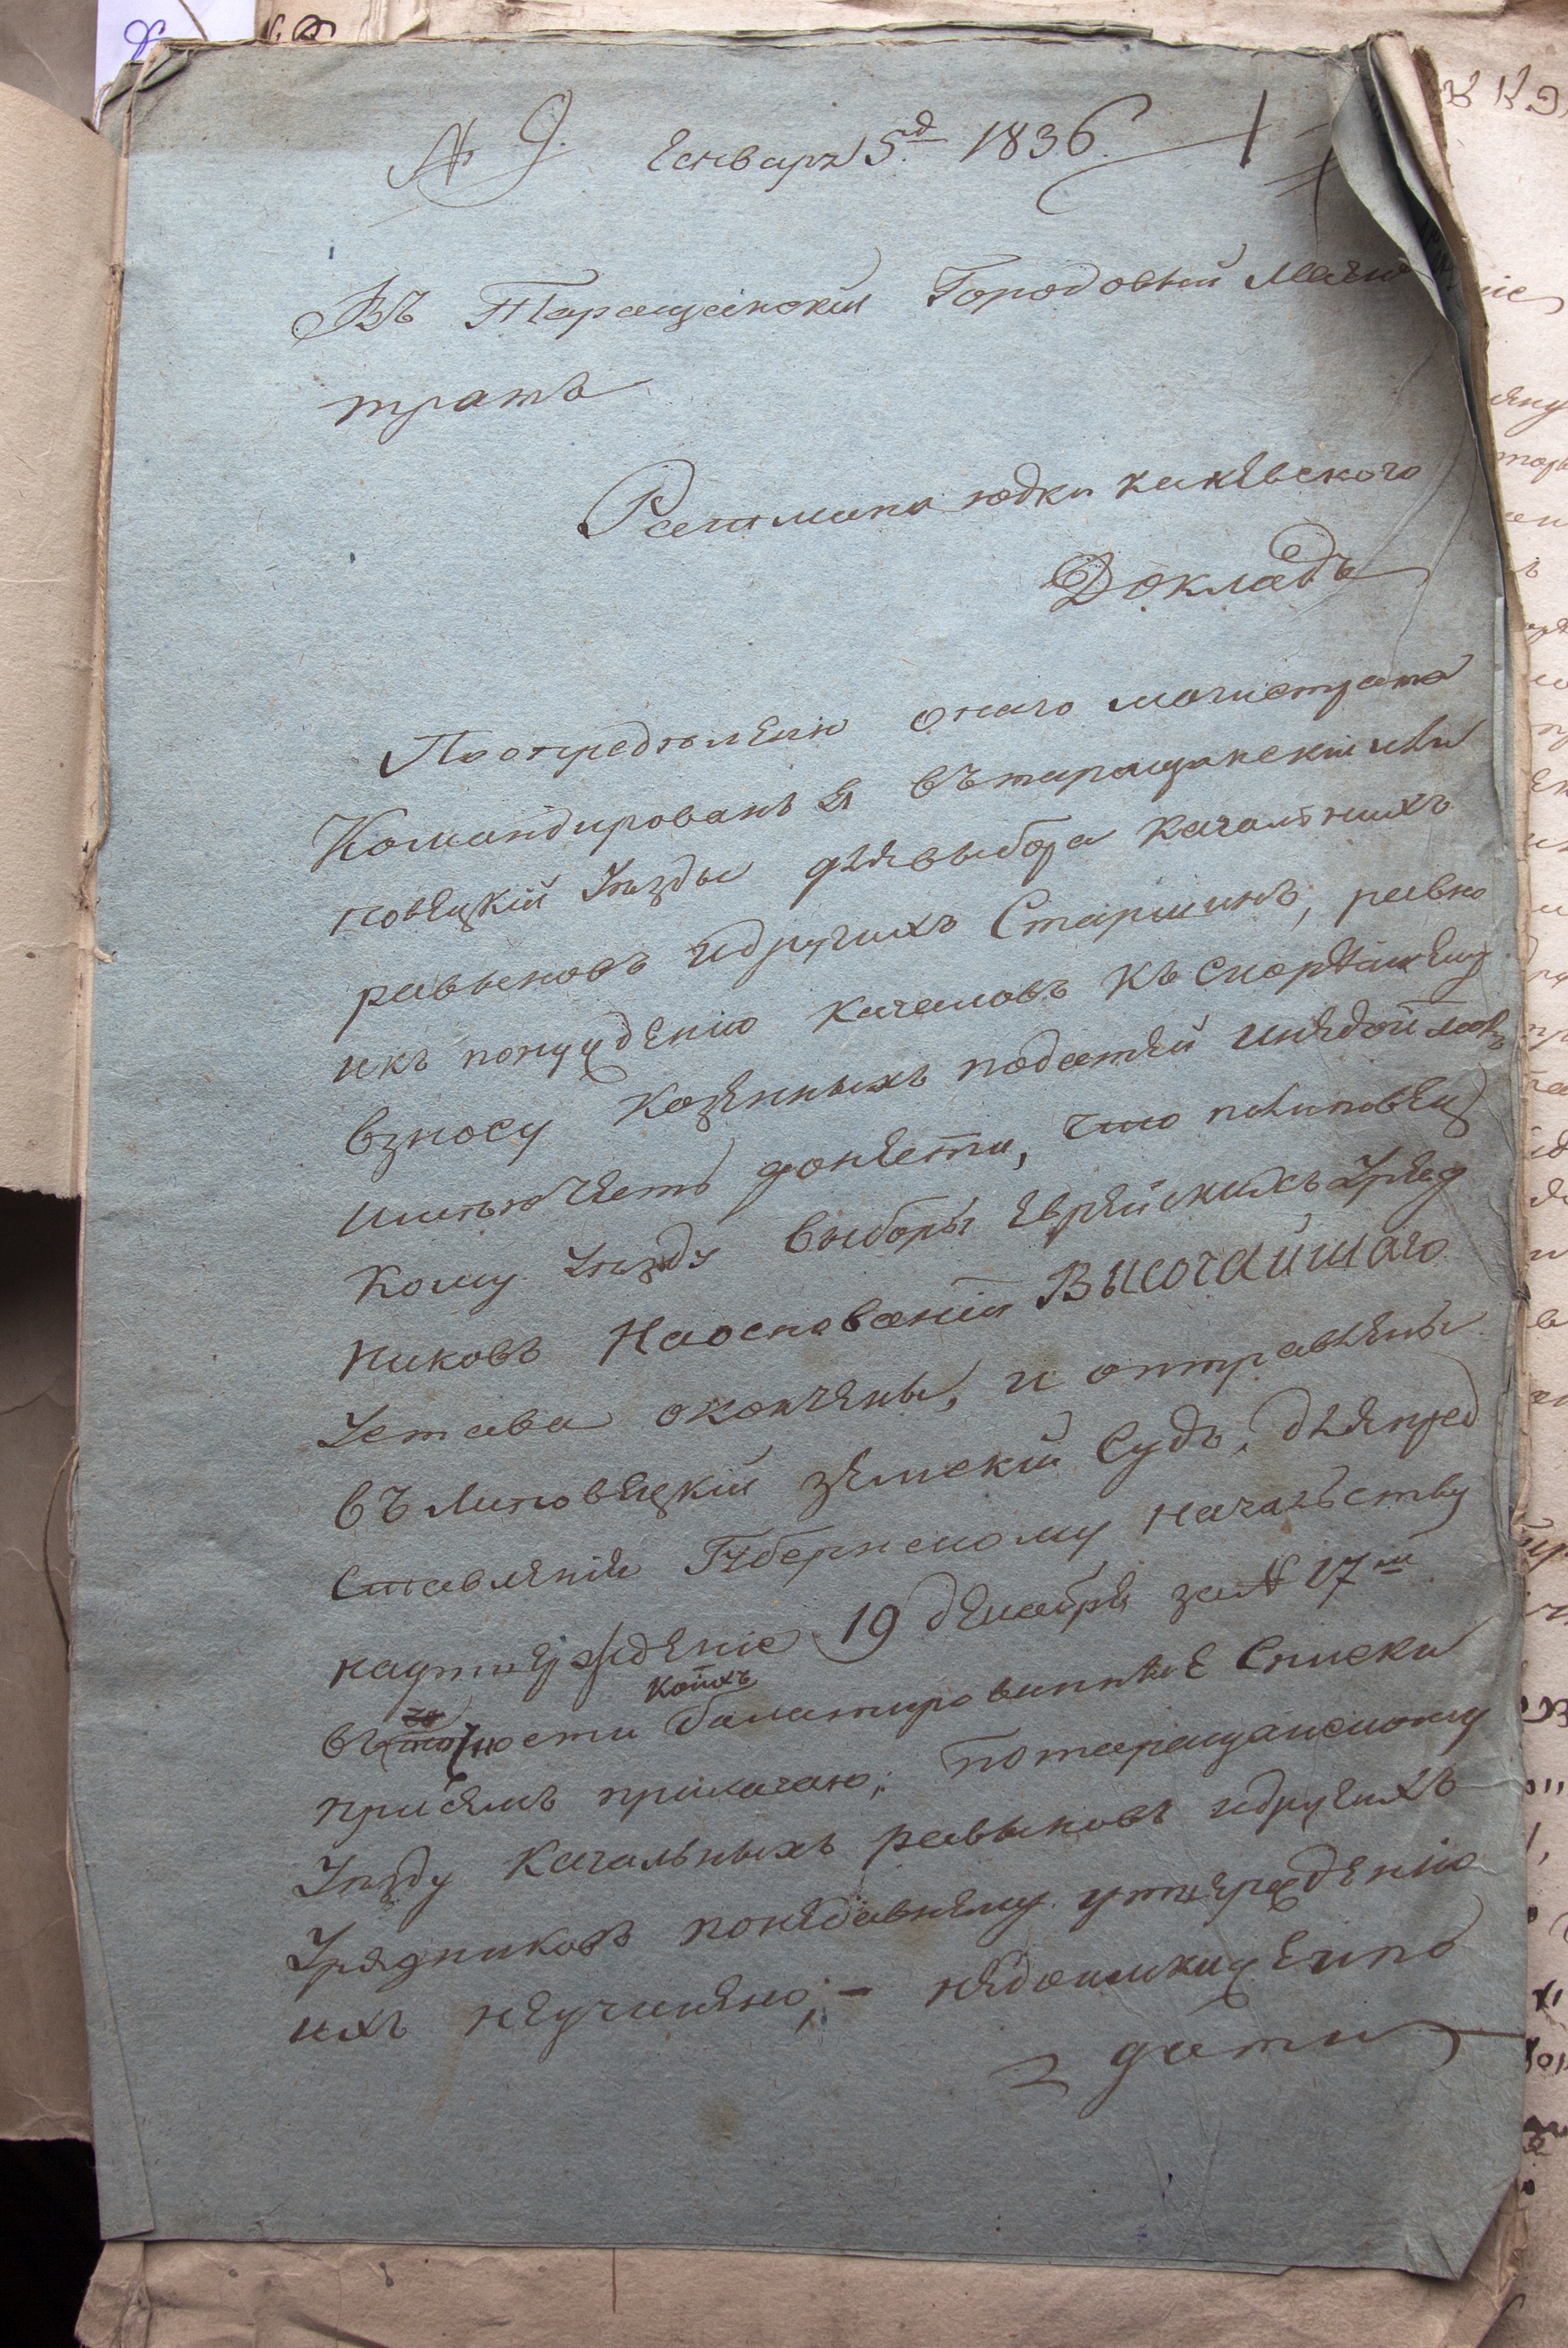 № 9. Енваря 5.д 1836. 1
Въ Таращанский Городовый Маги
тратъ
Ратмана юдки каневского
Докладъ
По определению онаго магистрата
Командированъ я въ таращанский и ли
повецкий Уезды для выбора кагальныхъ
равыновъ и другихъ Старшинъ, равно
и къ понуждению кагаловъ къ скорейшему
взносу казенныхъ податей и недоимокъ
имею честь донести, что по липовец
кому Уезду выборы еврейскихъ Уряд
никовъ На основании ВЫСОЧАЙШАГО
Устава окончены, и отправлены
въ липовецкий земский Судъ, для пред
ставления Губернскому начальству
на утверждение 19 декабря за № 17м
въ точности коихъ балатированные Списки
при семъ прилагаю; по таращанскому
Уезду Кагальныхъ равыновъ и другихъ
Урядниковъ по недавнему утверждению
ихъ не учинено; — недоимки и по
дати